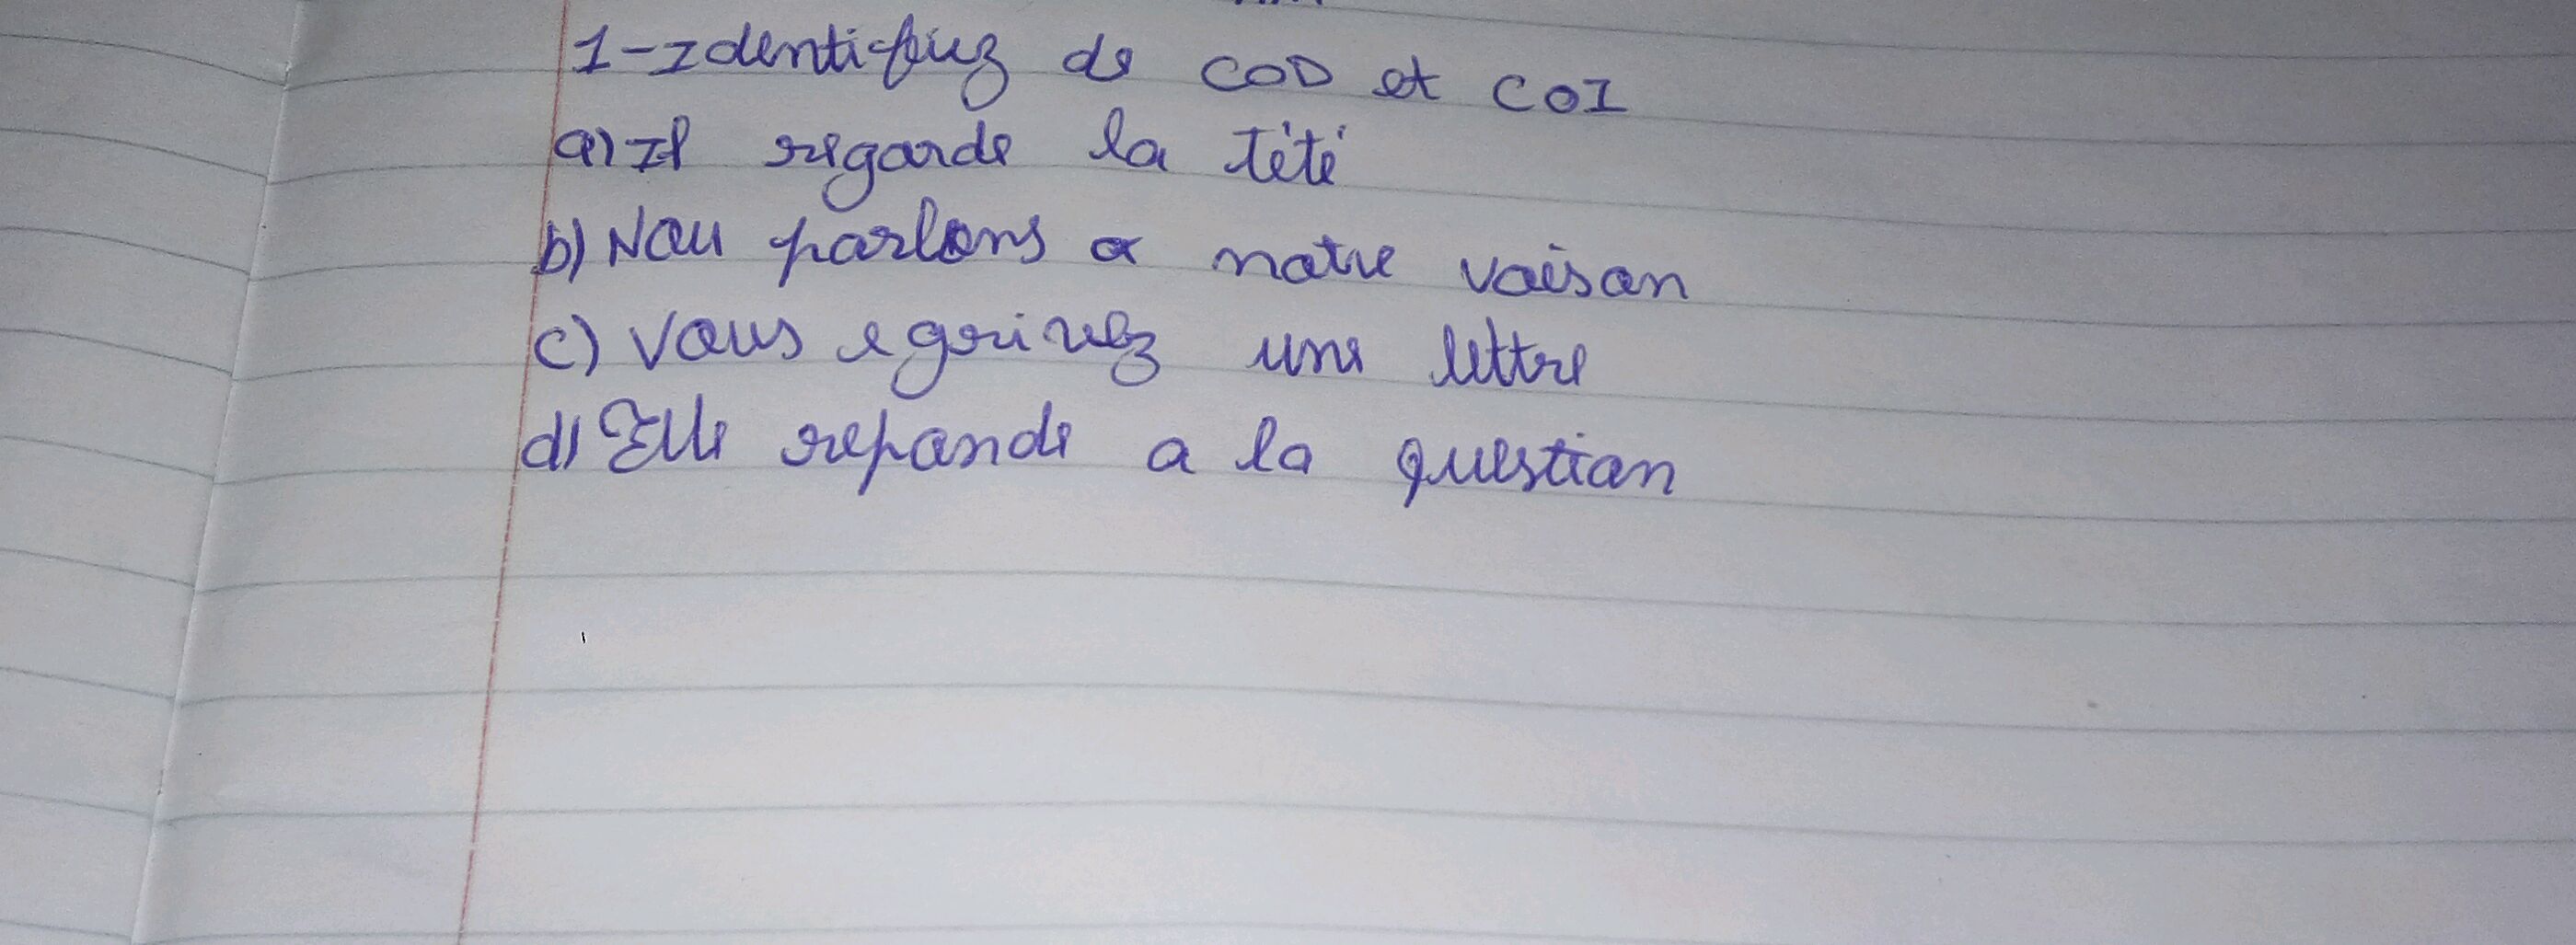 1-Identifiez de COD et COI
a) Il regarde la tété
b) Nou parlons a notre voison
c) Vous egrivez une lettre
d) Elle reponde a la question